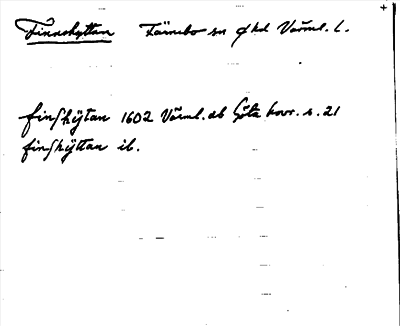 +
Finnshyttan Färnebo sn Ö hd Värml. l.
finshÿtan 1602 Värml. ab Göta hovr. s. 21
finshÿttan ib.